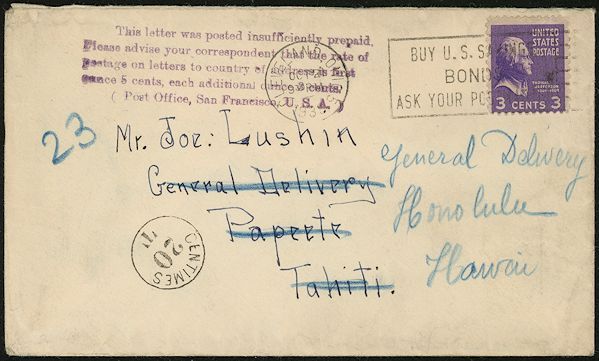 This letter was posted insufficiently prepaid.
Please advise your correspondent that the rate of
postage on letters to country of address is first
ounce 5 cents, each additional ounce 3 cents.
( Post Office, San Francisco, U. S. A. )
CLEVELAND, OHIO
OCT 24
BUY U.S. SAVING
BONDS
ASK YOUR PO
UNITED
STATES
POSTAGE
THOMAS
JEFFERSON
3 CENTS 3
23
Mr. Joe: Lushin
General Delivery
Papeete
Tahiti.
General Delivery
Honolulu
Hawaii
T
20
CENTIMES